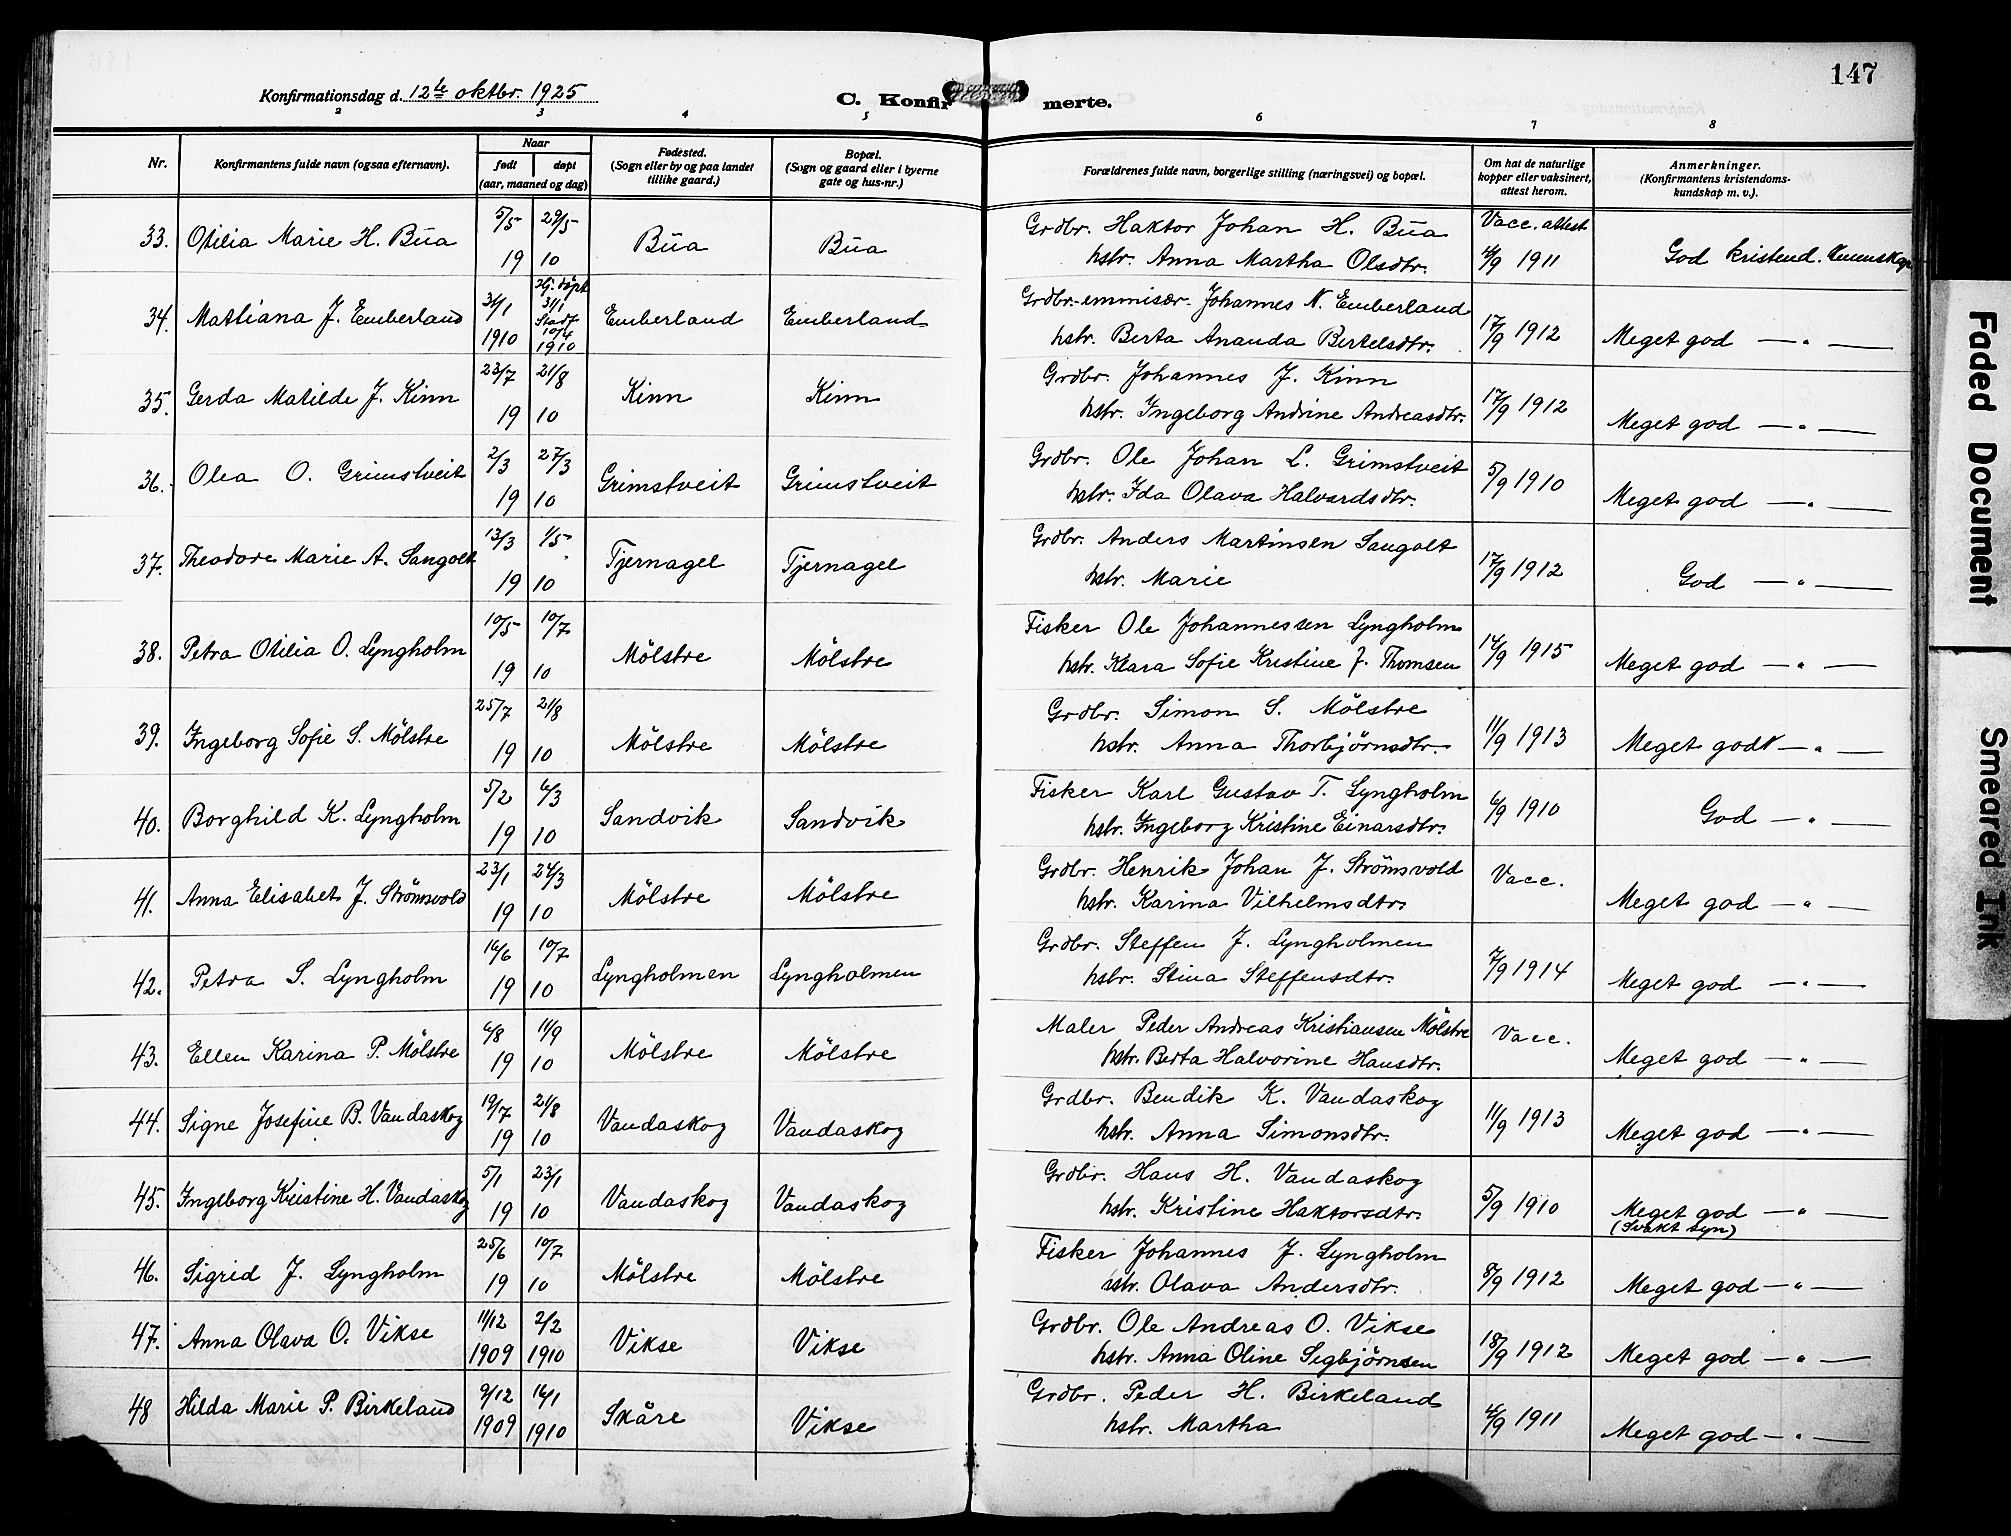 147
Konfirmationsdag d. 12te oktbr. 1925
C. Konfirmerte.
2 3 4 5 6 7 8
Nr.
Konfirmantens fulde navn (ogsaa efternavn).
Naar
født
døpt
(aar, maaned og dag)
Fødested.
(Sogn eller by og paa landet
tillike gaard.)
Bopæl.
(Sogn og gaard eller i byerne
gate og hus-nr.)
Forældrenes fulde navn, borgerlige stilling (næringsvei) og bopæl.
Om hat de naturlige
kopper eller vaksinert,
attest herom.
Anmerkninger.
(Konfirmantens kristendoms-
kundskap m. v.).
33. Otilia Marie H. Büa 5/5 19 29/5 10 Büa Büa Grdbr. Haktor Johan H. Büa Vacc. attest
hstr. Anna Martha Olsdtr. 4/9 1911 God kristend. kunnskap
34. Mathiana J. Emberland 31/1 1910 hj. döpt 31/1 Stadf 10/4 1910 Emberland Emberland Grdbr.-emmisær. Johannes N. Emberland
hstr. Berta Ananda Bertelsdtr. 17/9 1912 Meget god — " —
35. Gerda Matilde J. Kinn 23/7 19 21/8 10 Kinn Kinn Grdbr. Johannes J. Kinn
hstr. Ingeborg Andrine Andreasdtr. 17/9 1912 Meget god — " —
36. Olea O. Grimstveit 2/3 19 27/3 10 Grimstveit Grimstveit Grdbr. Ole Johan L. Grimstveit
hstr. Ida Olava Halvardsdtr. 5/9 1910 Meget god — " —
37. Theodore Marie A. Sangolt 13/3 19 1/5 10 Tjernagel Tjernagel Grdbr. Anders Martinsen Sangolt
hstr. Marie 17/9 1912 God — " —
38. Petra Otilia O. Lyngholm 10/5 19 10/7 10 Mölstre Mölstre Fisker Ole Johannessen Lyngholm
hstr. Klara Sofie Kristine J. Thomsen 14/9 1915 Meget god — " —
39. Ingeborg Sofie S. Mölstre 25/7 19 21/8 10 Mölstre Mölstre Grdbr. Simon S. Mölstre
hstr. Anna Thorbjörnsdtr. 11/9 1913 Meget godt — " —
40. Borghild K. Lyngholm 5/2 19 6/3 10 Sandvik Sandvik Fisker Karl Gustav T. Lyngholm
hstr. Ingeborg Kristine Einarsdtr. 6/9 1910 God — " —
41. Anna Elisabet J. Strömsvold 23/1 19 24/3 10 Mölstre Mölstre Grdbr. Henrik Johan J. Strömsvold Vacc.
hstr. Karina Vilhelmsdtr. Meget god — " —
42. Petra S. Lyngholm 16/6 19 10/7 10 Lyngholmen Lyngholmen Grdbr. Steffen J. Lyngholmen
hstr. Stina Steffensdtr. 7/9 1914 Meget god — " —
43. Ellen Karina P. Mölstre 6/8 19 11/9 10 Mölstre Mölstre Maler Peder Andreas Kristiansen Mölstre Vacc.
hstr. Berta Halvorine Hansdtr. Meget god — " —
44. Signe Josefine B. Vandaskog 19/7 19 21/8 10 Vandaskog Vandaskog Grdbr. Bendik K. Vandaskog
hstr. Anna Simonsdtr. 11/9 1913 Meget god — " —
45. Ingeborg Kristine H. Vandaskog 5/1 19 23/1 10 Vandaskog Vandaskog Grdbr. Hans H. Vandaskog
hstr. Kristine Haktorsdtr. 5/9 1910 Meget god — " —
(Svakt syn)
46. Sigrid J. Lyngholm 25/6 19 10/7 10 Mölstre Mölstre Fisker Johannes J. Lyngholm
hstr. Olava Andersdtr. 8/9 1912 Meget god — "
47. Anna Olava O. Vikse 11/12 1909 2/2 1910 Vikse Vikse Grdbr. Ole Andreas O. Vikse
hstr. Anna Oline Sigbjörnsen 18/9 1912 Meget god — " —
48 Hilda Marie P. Birkeland 9/12 1909 16/1 1910 Skåre Vikse Grdbr. Peder H. Birkeland
hstr. Martha 4/9 1911 Meget god — " —
Faded Document
Smeared Ink